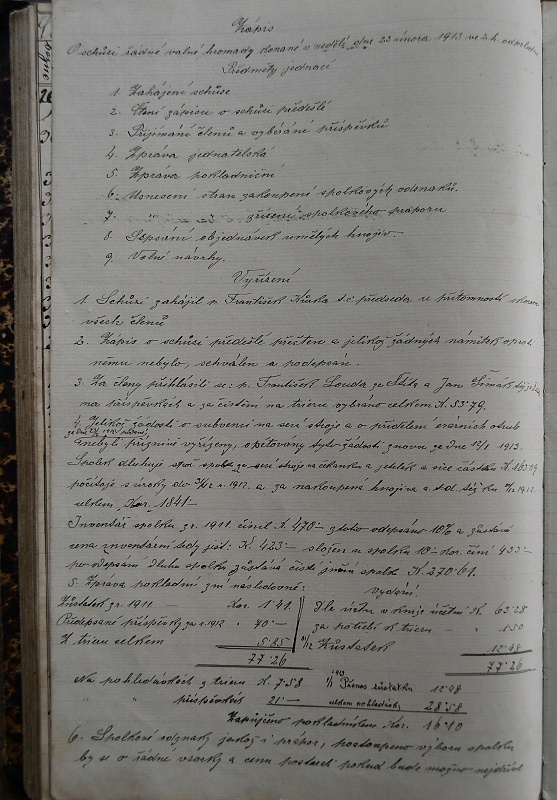 Zápis
O schůzi řádné valné hromady konané v neděli dne 23 února 1913 ve 2 h. odpoledne
Předměty jednací
1. Zahájení schůze
2. Čtení zápisu o schůzi předešlé
3. Přijímání členů a vybírání příspěvků
4. Zpráva jednatelská
5. Zpráva pokladniční
6. Usnesení stran zakoupení spolkových odznaků.
7. " " zřízení spolkového praporu
8. Sepsání objednávek umělých hnojiv.
9. Volné návrhy.
Vyřízení
1. Schůzi zahájil p. František t.č. předseda v přítomnosti skoro
všech členů
2. Zápis o schůzi předešlé přečten a jelikož žádných námitek proti
němu nebylo, schválen a podepsán.
3. Za členy přihlásili se: p. František Louda ze a Jan Šimák
na příspěvkách a za čistění na trieru vybráno celkem K. 53·79.
4. Jelikož žádosti o subvenci na secí stroj a o přídělem otrub
nebyli příznivě vyřízeny, opětovány tyto žádosti znovu ze dne 12/1 1913.
Spolek dluhuje za secí stroje a jetelák a sice částku K 1637·9
počítaje s úroky do r. 1912. a za nakoupená hnojiva a t.d. též ku 1912
celkem Kor. 1841–
Inventář spolku r. 1911. činil K. 470– z toho odepsáno 10% a zůstává
cena inventární tedy jest: K. 423– složen u spolku 10– Kor. činí 933–
po odepsání dluhu spolku zůstává čistí jmění spolk. K 270·61.
5. Zpráva pokladní zní následovně: vydání:
Zůstatek z r. 1911. — Kor. 1·41. Dle účtu v knize účetní K. 63·28
Předepsané příspěvky za r. 1912 " 70— za potřeb k trieru — " 1·50
Z trieru celkem 5·85 31/12 Zůstatek 12·48
77·26 77·26
Na pohledávkách z trieru K. 7·58 1/1 Přenos zůstatku 12·48
" " příspěvkách 21·— celkem pohledávky 28·58
Zapůjčeno pokladníkem Kor. 16·10
6. Spolkové odznaky jakož i prápor, postoupeno výboru spolku
by se o řádné vzorky a cenu postaral pokud bude možno nejdříve